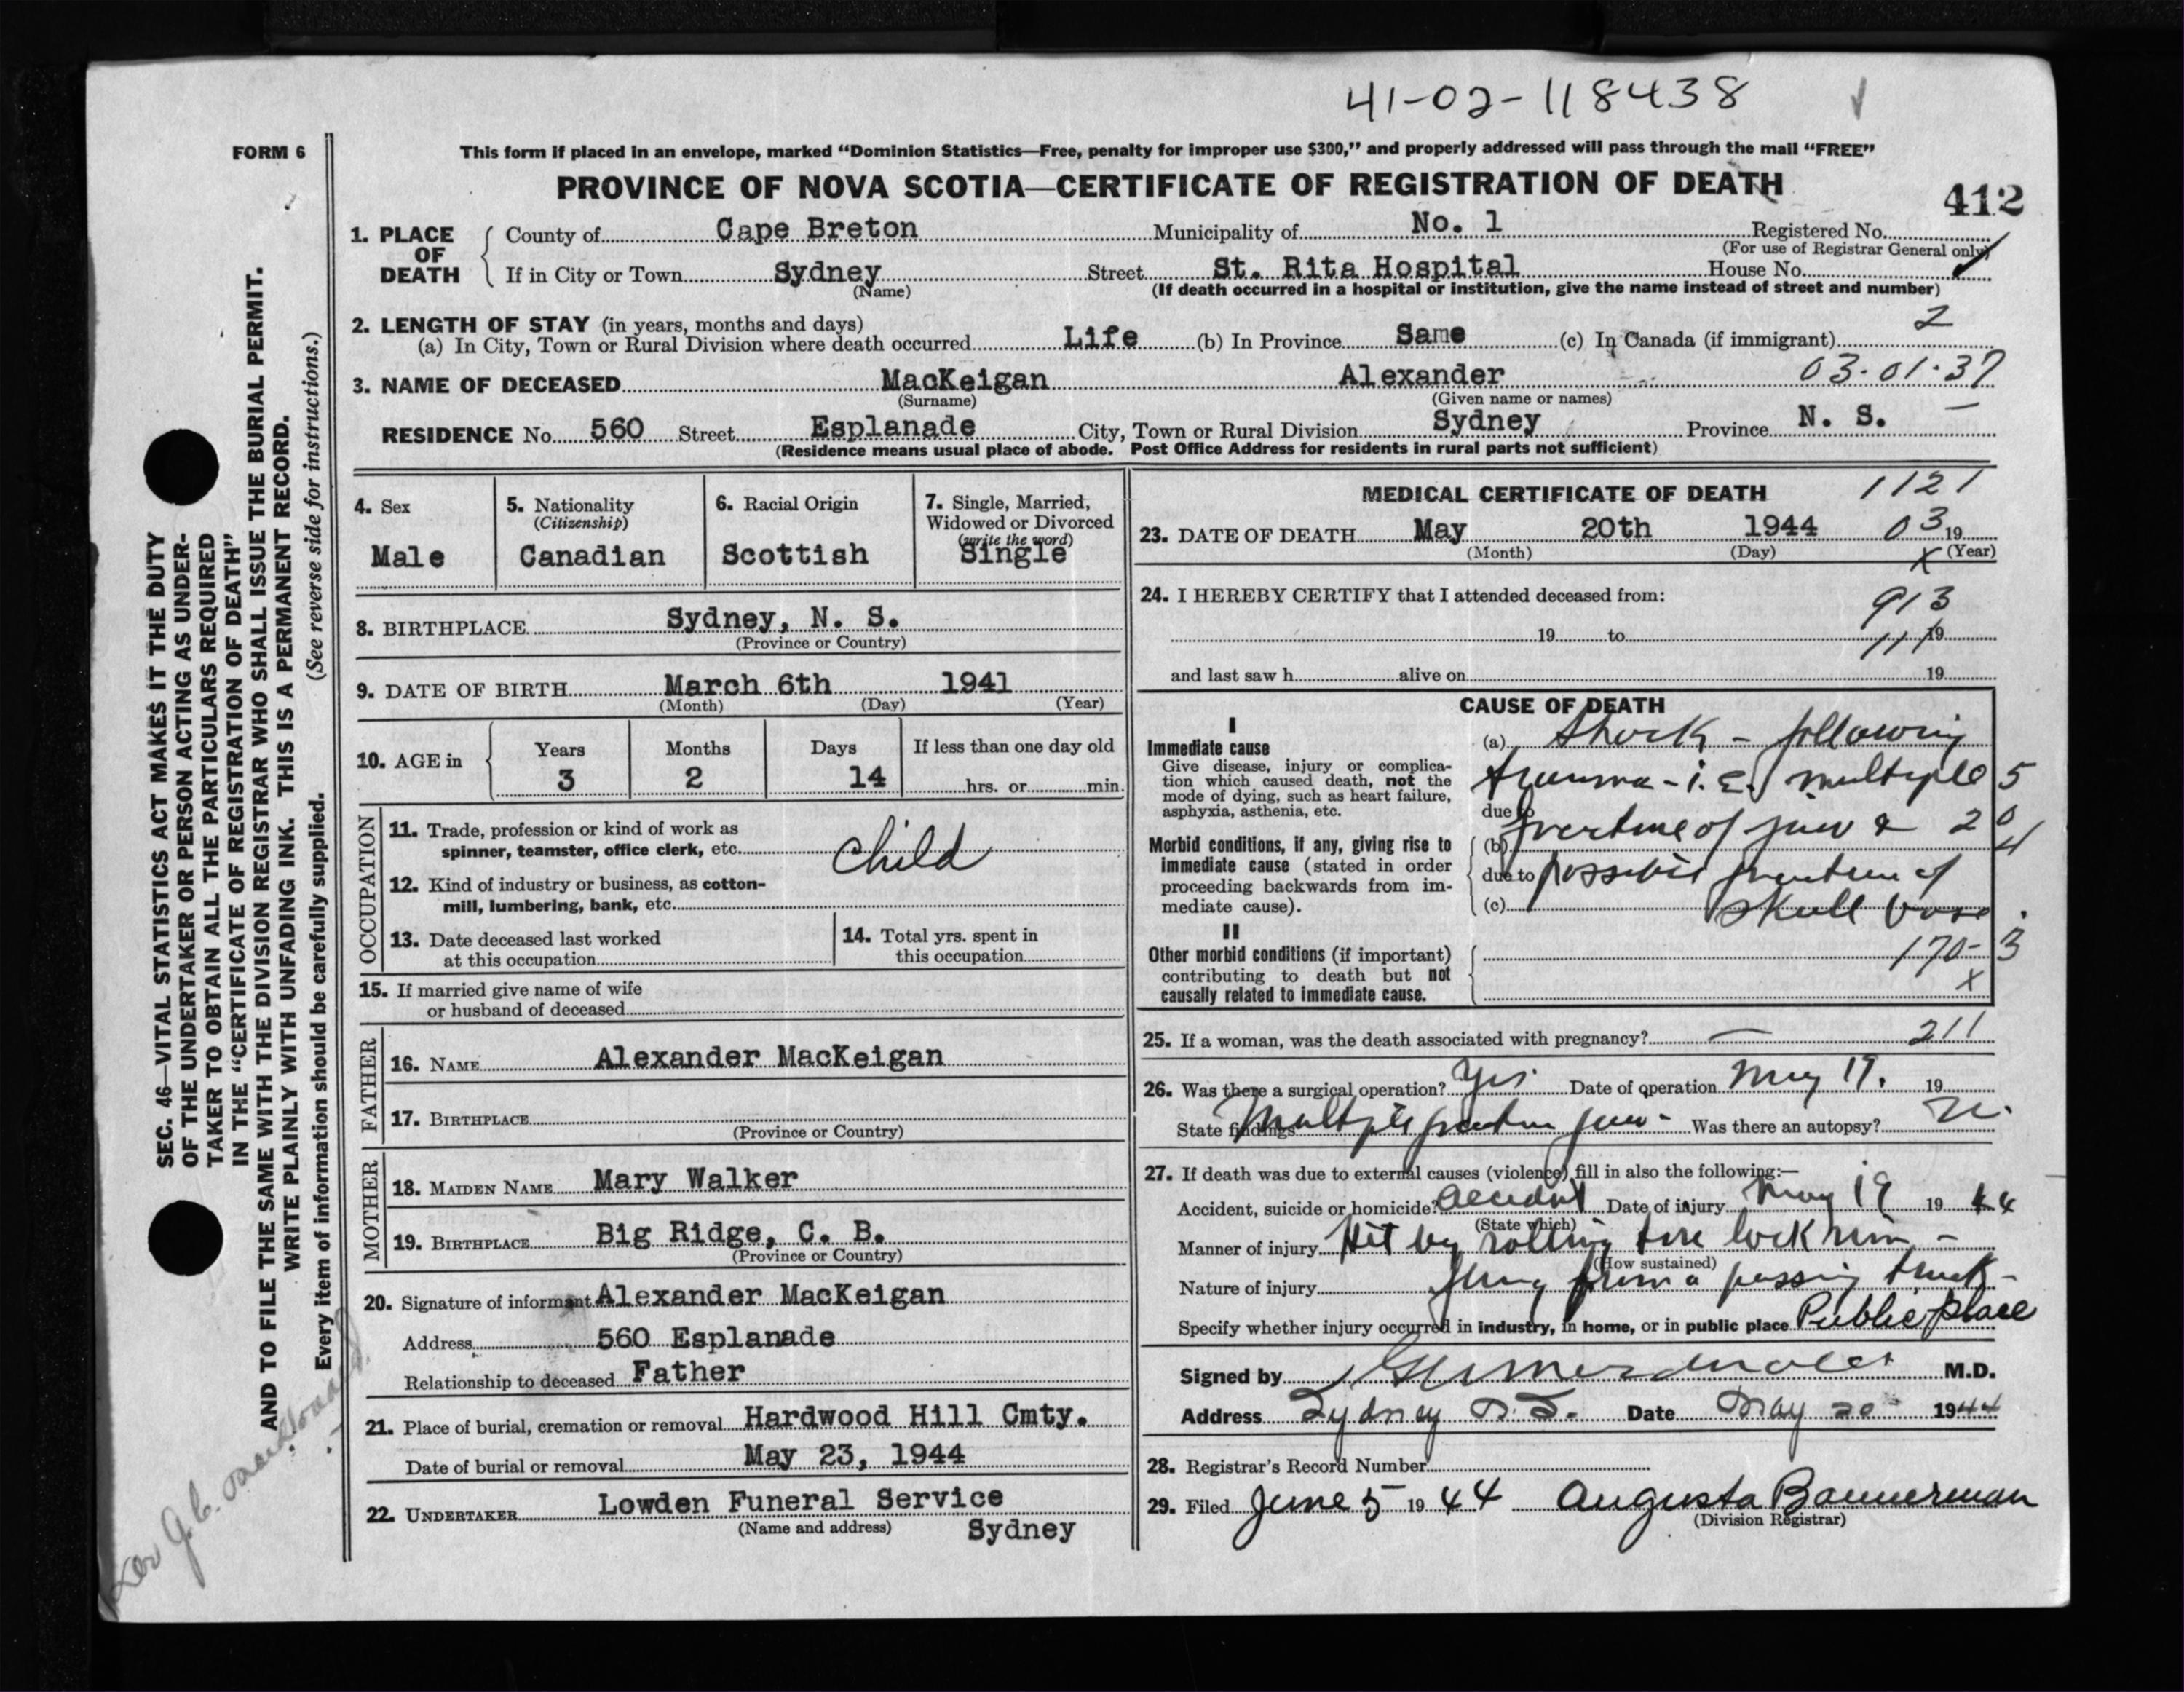 41-02-118438
FORM 6
This form if placed in an envelope, marked “Dominion Statistics—Free, penalty for improper use $300,” and properly addressed will pass through the mail “FREE”
PROVINCE OF NOVA SCOTIA—CERTIFICATE OF REGISTRATION OF DEATH
412
1. PLACE OF DEATH
County of Cape Breton Municipality of No. 1 Registered No.
(For use of Registrar General only)
If in City or Town Sydney Street St. Rita Hospital House No.
(Name) (If death occurred in a hospital or institution, give the name instead of street and number)
2. LENGTH OF STAY (in years, months and days) 2
(a) In City, Town or Rural Division where death occurred Life (b) In Province Same (c) In Canada (if immigrant)
3. NAME OF DECEASED MacKeigan Alexander 03.01.37
(Surname) (Given name or names)
RESIDENCE No. 560 Street Esplanade City, Town or Rural Division Sydney Province N. S.
(Residence means usual place of abode. Post Office Address for residents in rural parts not sufficient)
4. Sex
Male
5. Nationality
(Citizenship)
Canadian
6. Racial Origin
Scottish
7. Single, Married,
Widowed or Divorced
(write the word)
Single
8. BIRTHPLACE Sydney, N. S.
(Province or Country)
9. DATE OF BIRTH March 6th 1941
(Month) (Day) (Year)
10. AGE in Years Months Days If less than one day old
3 2 14 hrs. or min.
OCCUPATION
11. Trade, profession or kind of work as
spinner, teamster, office clerk, etc. Child
12. Kind of industry or business, as cotton-
mill, lumbering, bank, etc.
13. Date deceased last worked
at this occupation
14. Total yrs. spent in
this occupation
15. If married give name of wife
or husband of deceased
FATHER
16. NAME Alexander MacKeigan
17. BIRTHPLACE
(Province or Country)
MOTHER
18. MAIDEN NAME Mary Walker
19. BIRTHPLACE Big Ridge, C. B.
(Province or Country)
20. Signature of informant Alexander MacKeigan
Address 560 Esplanade
Relationship to deceased Father
21. Place of burial, cremation or removal Hardwood Hill Cmty.
Date of burial or removal May 23, 1944
22. UNDERTAKER Lowden Funeral Service
(Name and address) Sydney
MEDICAL CERTIFICATE OF DEATH 1121
23. DATE OF DEATH May 20th 1944 03 19
(Month) (Day) (Year)
x
24. I HEREBY CERTIFY that I attended deceased from: 913
19 to 19
111
and last saw h alive on 19
CAUSE OF DEATH
I
Immediate cause
Give disease, injury or complica-
tion which caused death, not the
mode of dying, such as heart failure,
asphyxia, asthenia, etc.
Morbid conditions, if any, giving rise to
immediate cause (stated in order
proceeding backwards from im-
mediate cause).
II
Other morbid conditions (if important)
contributing to death but not
causally related to immediate cause.
(a) Shock - following
trauma - i.e. multiple 5
due to
(b) fracture of jaw & 20
4
due to possible fracture of
(c) skull base.
170- 3
x
25. If a woman, was the death associated with pregnancy? — 211
26. Was there a surgical operation? Yes Date of operation May 19. 19
State findings Multiple fracture jaw - Was there an autopsy?
27. If death was due to external causes (violence) fill in also the following:—
Accident, suicide or homicide? Accident Date of injury May 19 19 44
(State which)
Manner of injury Hit by rolling tire lock rim -
(How sustained)
Nature of injury flung from a passing truck -
Specify whether injury occurred in industry, in home, or in public place Public place
Signed by M.D.
Address Sydney N.S. Date May 20 1944
28. Registrar's Record Number
29. Filed June 5 19 44 Augusta Bannerman
(Division Registrar)
SEC. 46—VITAL STATISTICS ACT MAKES IT THE DUTY
OF THE UNDERTAKER OR PERSON ACTING AS UNDER-
TAKER TO OBTAIN ALL THE PARTICULARS REQUIRED
IN THE “CERTIFICATE OF REGISTRATION OF DEATH”
AND TO FILE THE SAME WITH THE DIVISION REGISTRAR WHO SHALL ISSUE THE BURIAL PERMIT.
WRITE PLAINLY WITH UNFADING INK. THIS IS A PERMANENT RECORD.
Every item of information should be carefully supplied. (See reverse side for instructions.)